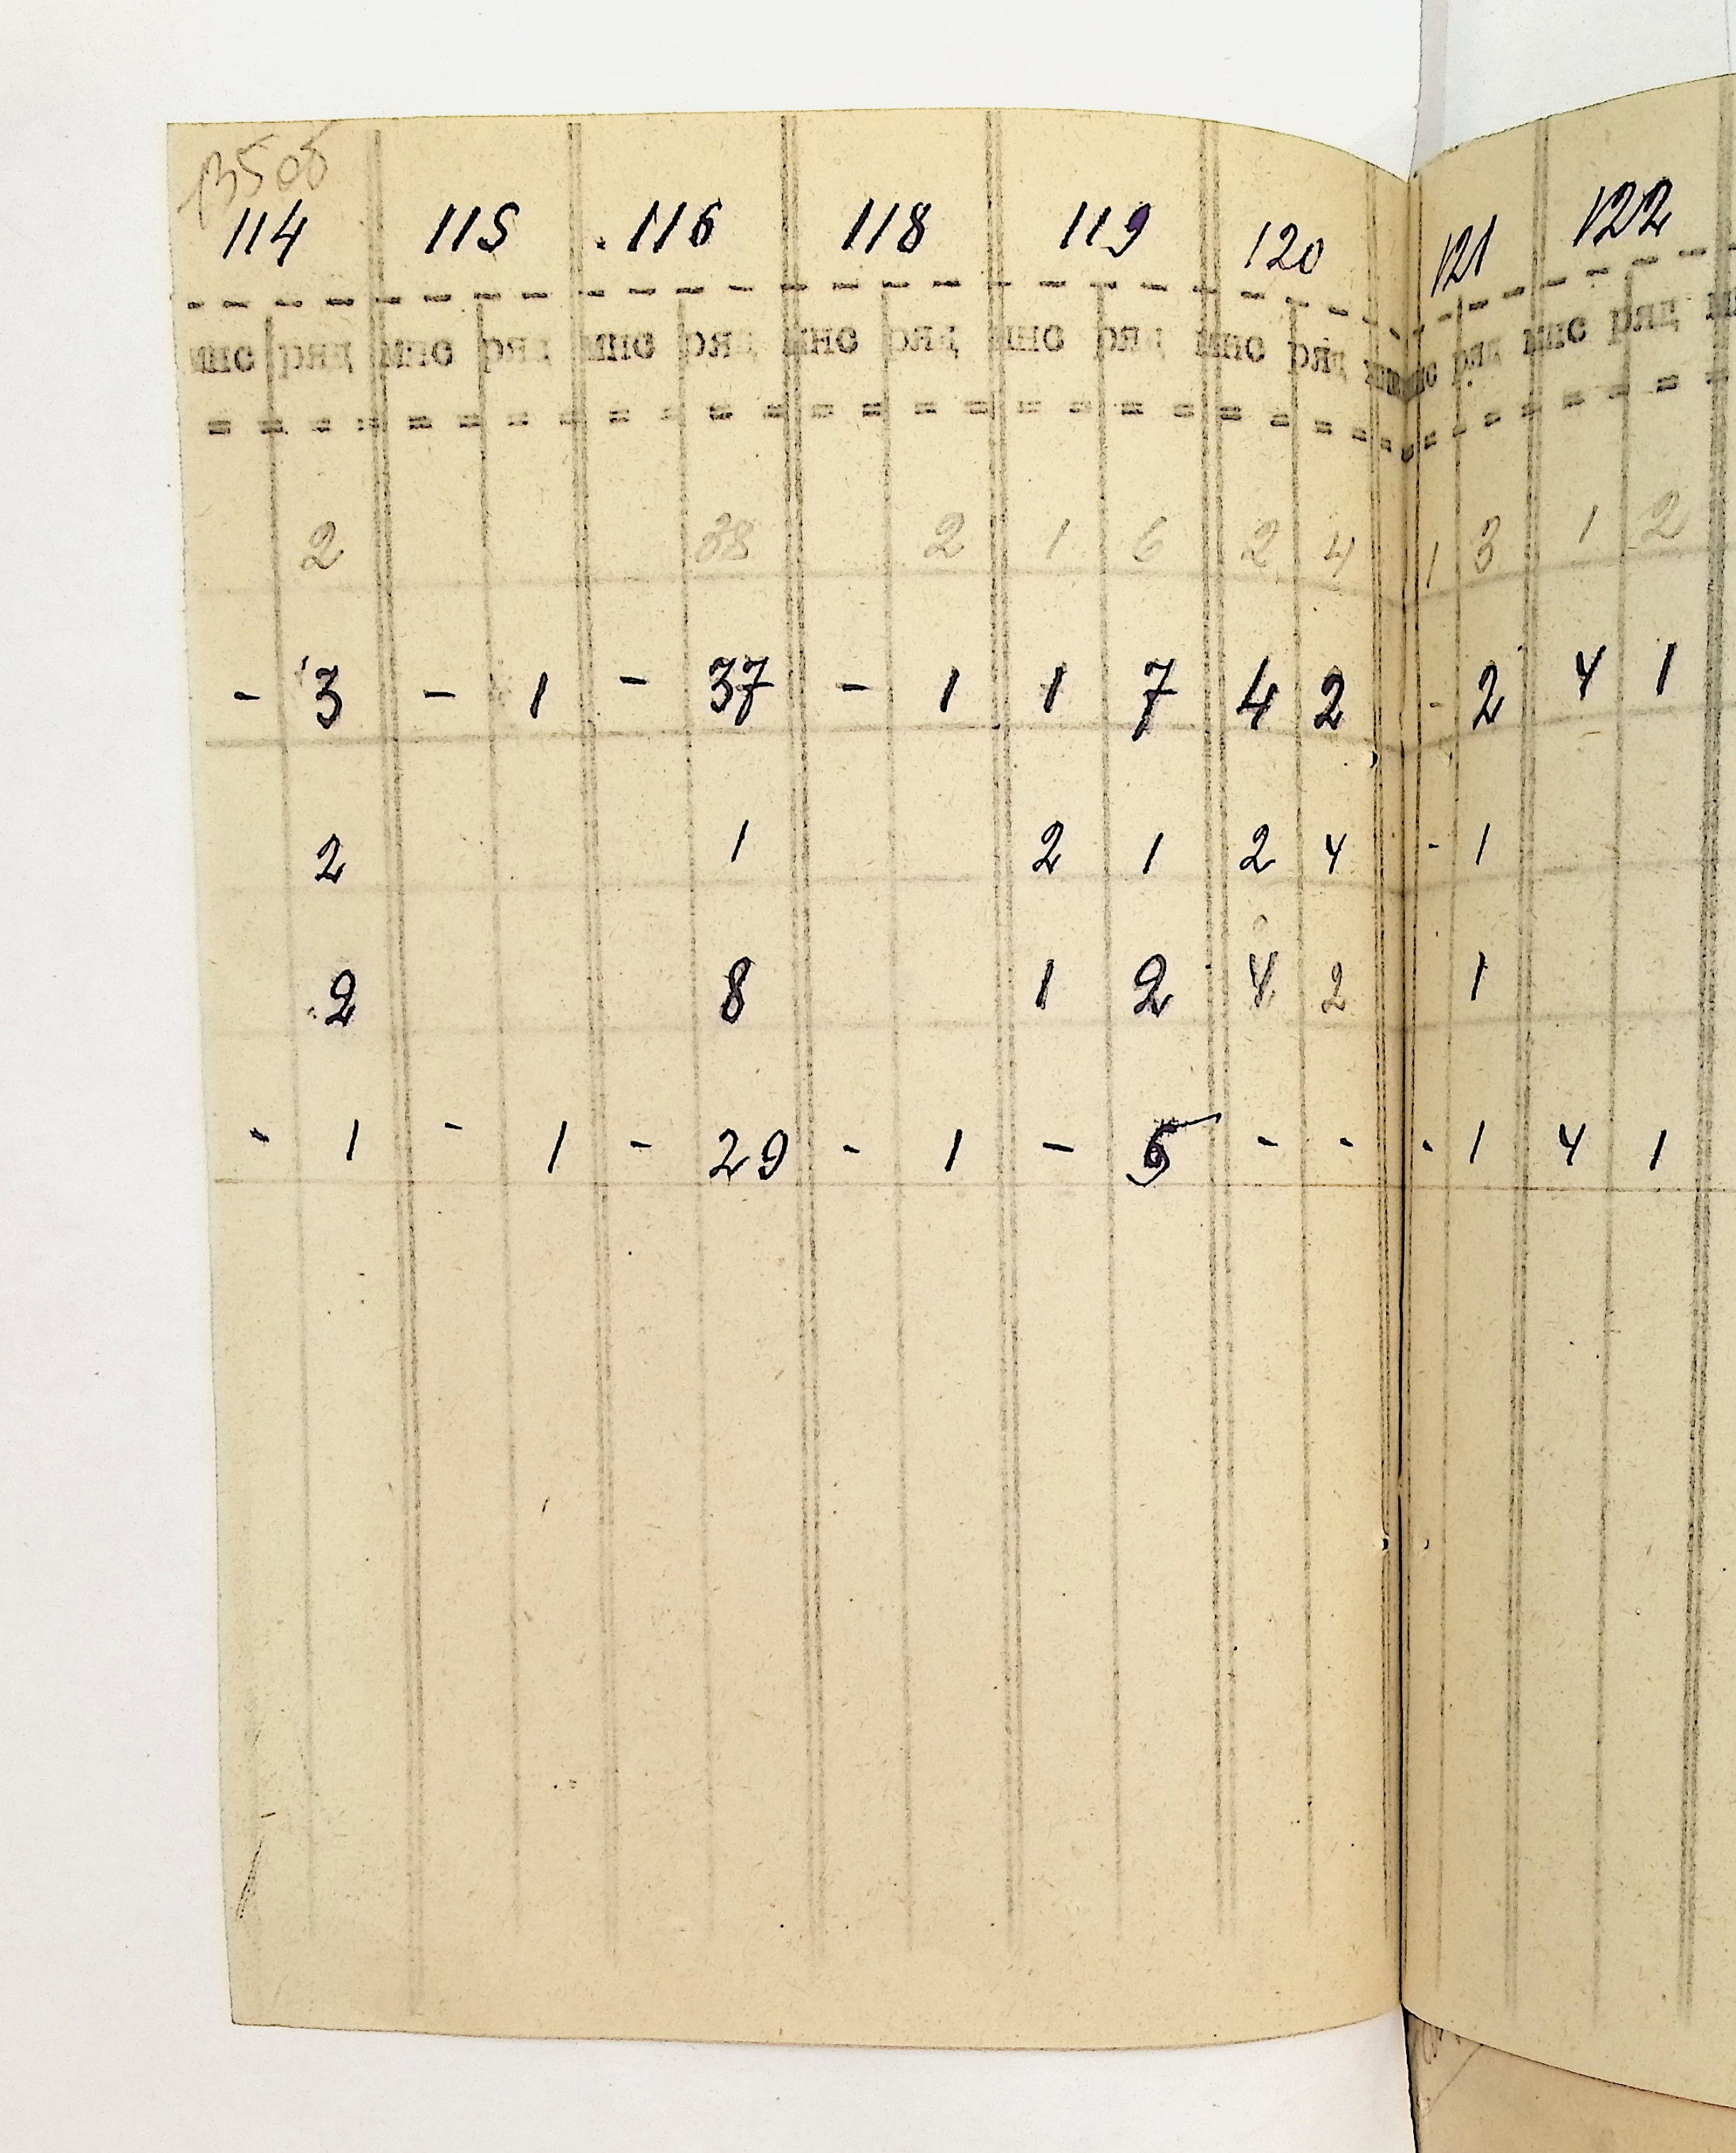 114 115 116 118 119 120 121 122
мнс ряд мнс ряд мнс ряд мнс ряд мнс ряд мнс ряд мнс ряд мнс ряд
2 38 2 1 6 2 4 1 3 1 2
- 3 - 1 - 37 - 1 1 7 4 2 - 2 4 1
2 1 2 1 2 4 - 1
2 8 1 2 4 2 1
- 1 - 1 - 29 - 1 - 5 - - - 1 4 1